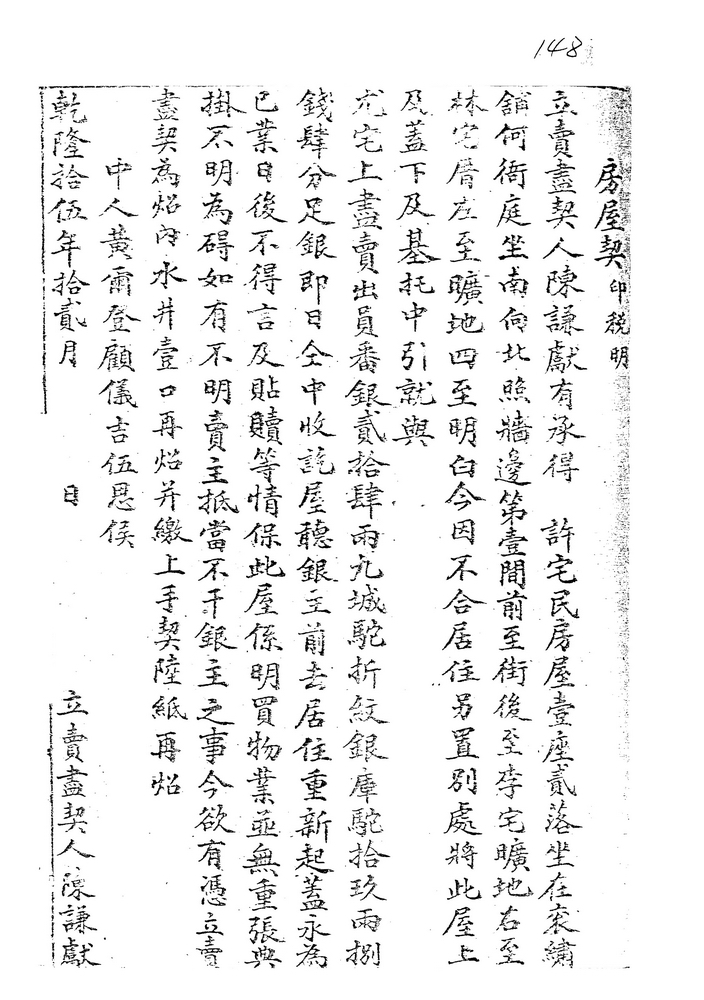 148
房屋契 印税明
立賣盡契人陳謙獻有承得 許宅民房屋壹座貳落坐在袞繡
舖何衙庭坐南向北照牆邊第壹間前至街後至李宅曠地右至
林宅厝左至曠地四至明白今因不合居住另置別處將此屋上
及蓋下及基托中引就與
尤宅上盡賣出員番銀貳拾肆兩九城駝折紋銀庫駝拾玖兩捌
錢肆分足銀即日仝中收訖屋聽銀主前去居住重新起蓋永為
己業日後不得言及貼贖等情保此屋係明買物業並無重張典
掛不明為碍如有不明賣主抵當不干銀主之事今欲有憑立賣
盡契為炤內水井壹口再炤并繳上手契陸紙再炤
中人黃爾登顧儀吉伍恩侯
乾隆拾伍年拾貳月 日 立賣盡契人陳謙獻